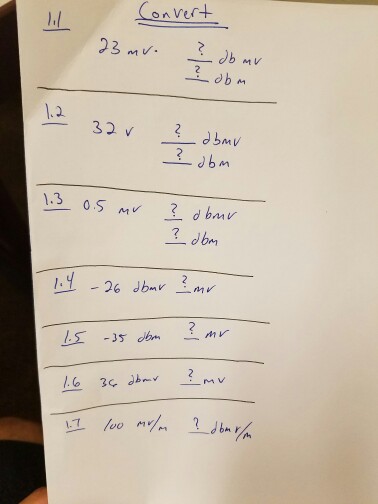 1.1 Convert
23 mv. ? db mv
? dbm
1.2
32 v ? dbmv
? dbm
1.3 0.5 mv ? dbmv
? dbm
1.4 -26 dbmv ? mv
1.5 -35 dbm ? mv
1.6 36 dbmv ? mv
1.7 100 mv/m ? dbmv/m